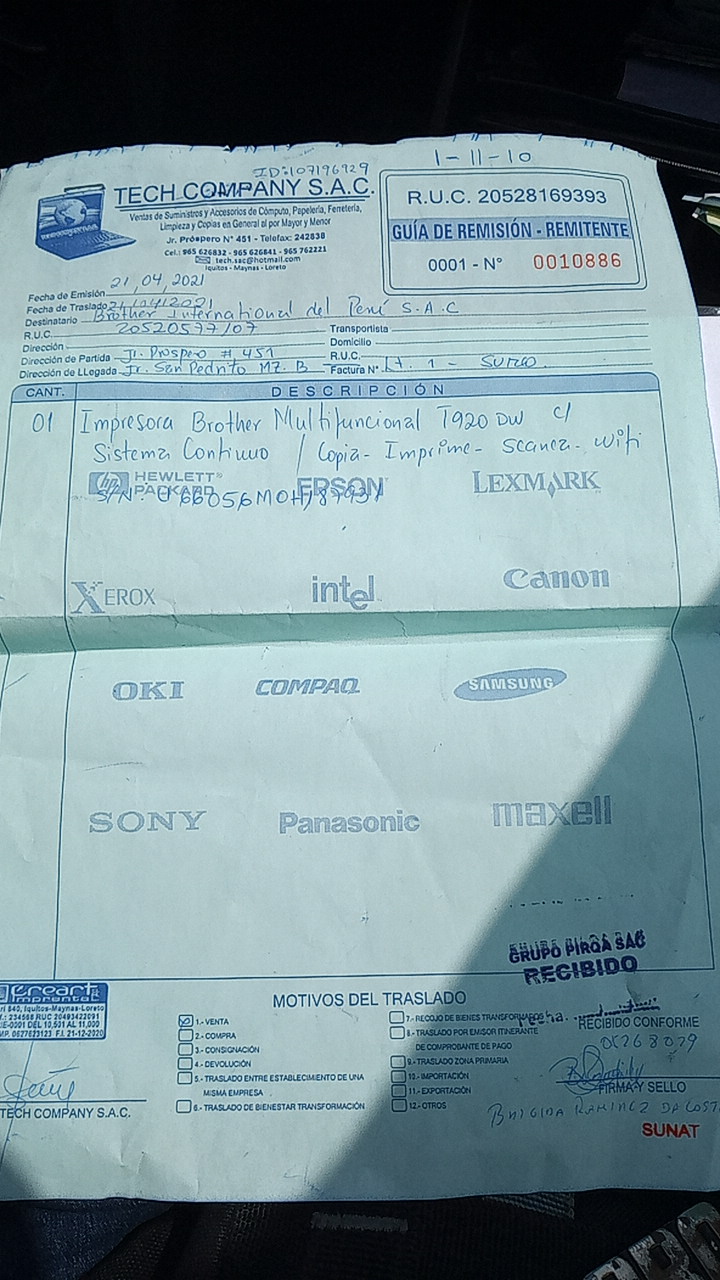 ID:107196929
1-11-10
TECH COMPANY S.A.C.
Ventas de Suministros y Accesorios de Cómputo, Papelería, Ferretería,
Limpieza y Copias en General al por Mayor y Menor
Jr. Próspero N° 451 - Telefax: 242838
Cel.: 965 626832 - 965 626841 - 965 762221
tech.sac@hotmail.com
Iquitos - Maynas - Loreto
R.U.C. 20528169393
GUÍA DE REMISIÓN - REMITENTE
0001 - N° 0010886
Fecha de Emisión 21,04,2021
Fecha de Traslado 21/04/2021
Destinatario Brother International del Perú S.A.C
R.U.C. 20520577107
Transportista
Dirección
Domicilio
Dirección de Partida Jr. Prospero # 451
R.U.C.
Dirección de LLegada Jr. San Pedrito MZ. B
Factura N° Lt. 1 - SURCO.
CANT. DESCRIPCIÓN
01 Impresora Brother Multifuncional T920 DW c/
Sistema Continuo / Copia- Imprime- Scanea- Wifi
HEWLETT PACKARD EPSON LEXMARK
S/N:
XEROX intel Canon
OKI COMPAQ SAMSUNG
SONY Panasonic maxell
GRUPO PIRQA SAC
RECIBIDO
Fecha.
Creart
Imprenta
640, Iquitos-Maynas-Loreto
234568 RUC 20493422091
0001 DEL 10,501 AL 11,000
0627623123 F.I. 21-12-2020
TECH COMPANY S.A.C.
MOTIVOS DEL TRASLADO
1.- VENTA
2.- COMPRA
3.- CONSIGNACIÓN
4.- DEVOLUCIÓN
5.- TRASLADO ENTRE ESTABLECIMIENTO DE UNA
MISMA EMPRESA
6.- TRASLADO DE BIENESTAR TRANSFORMACIÓN
7.- RECOJO DE BIENES TRANSFORMADOS
8.- TRASLADO POR EMISOR ITINERANTE
DE COMPROBANTE DE PAGO
9.- TRASLADO ZONA PRIMARIA
10.- IMPORTACIÓN
11.- EXPORTACIÓN
12.- OTROS
RECIBIDO CONFORME
05268079
FIRMA Y SELLO
BRIGIDA RAMIREZ DA COSTA
SUNAT